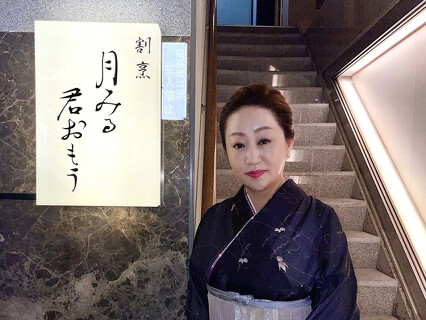 割烹
月みる
君おもう